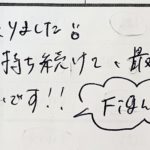 りました
持ち続けて、最
です!!
Figh